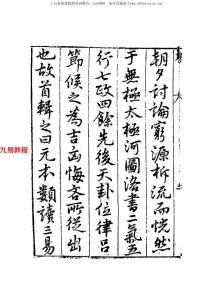 朝夕討論窮源析流而恍然
于無極太極河圖洛書二氣五
行七政四餘先後天卦位律呂
節候之為吉凶悔吝所從出
也故首輯之曰元本數讀三易
九易教程